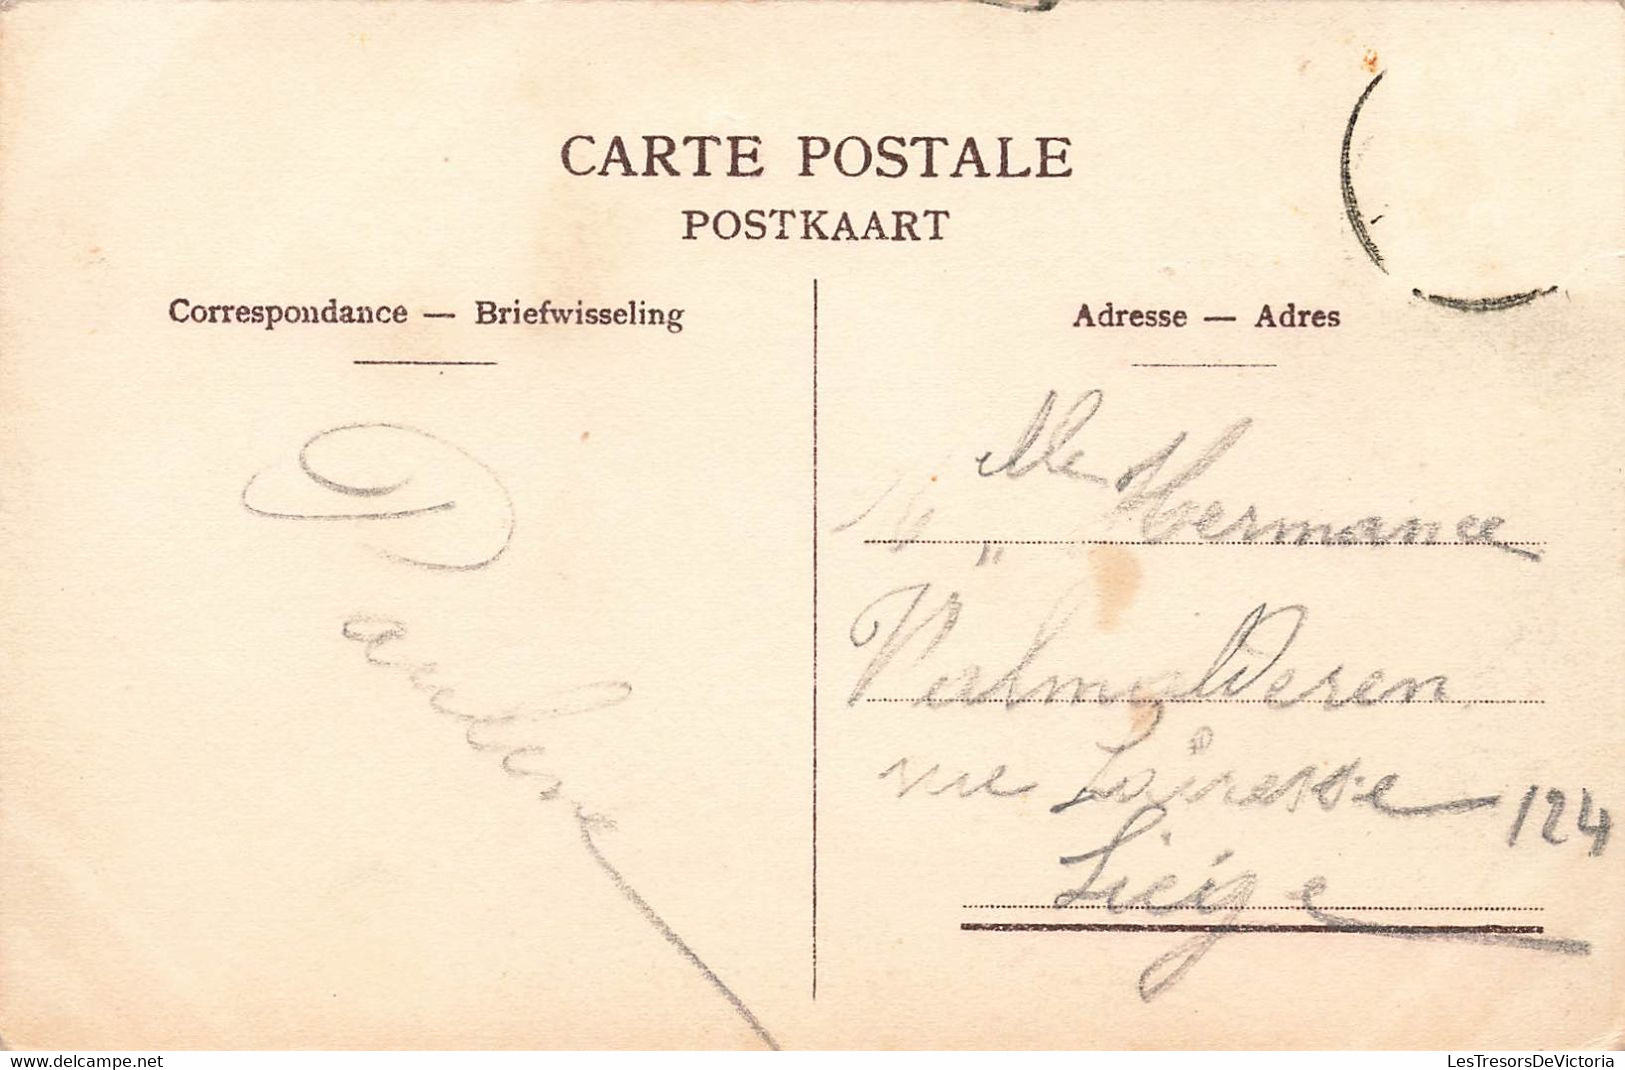 CARTE POSTALE
POSTKAART
Correspondance — Briefwisseling
Adresse — Adres
Pauline
Mlle Hermance
rue Lairesse 124
Liége
delcampe.net
LesTresorsDeVictoria